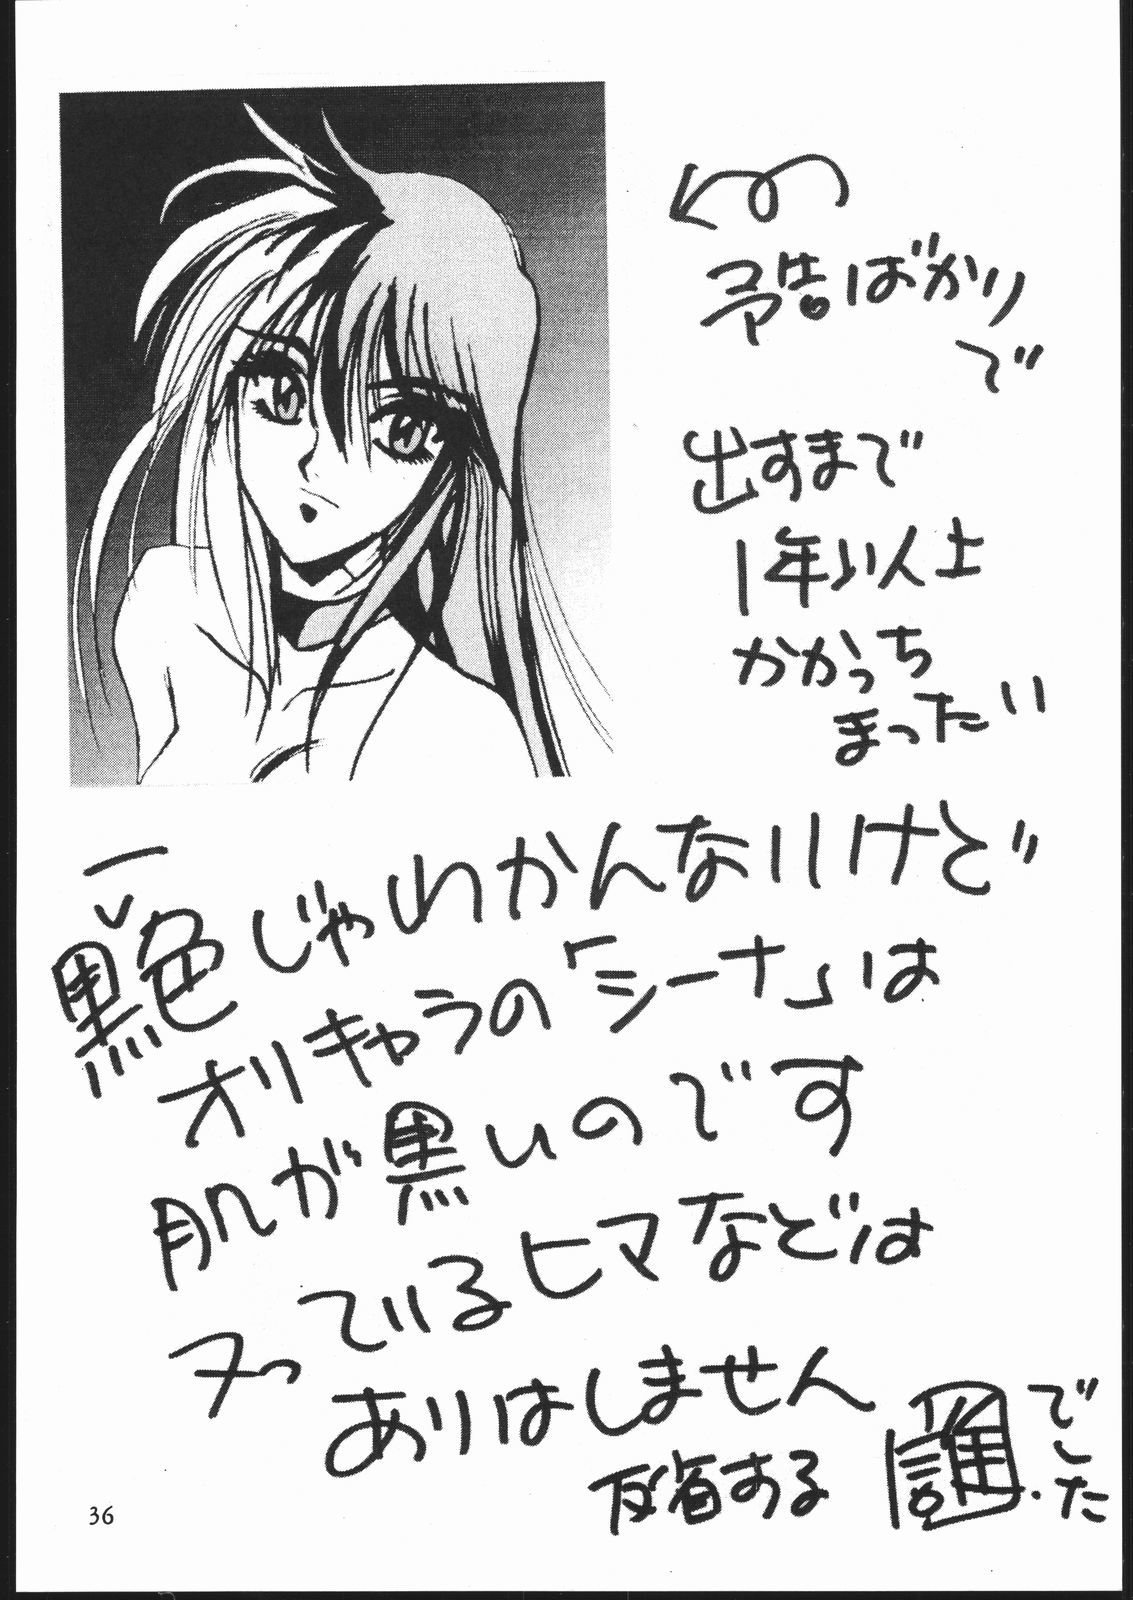 予告ばかり
で
出すまで
1年以上
かかっち
まったい
一色じゃわかんないけど
オリキャラの「シーナ」は
肌が黒いのです
ヌっているヒマなどは
ありはしません
反省する
でした
36